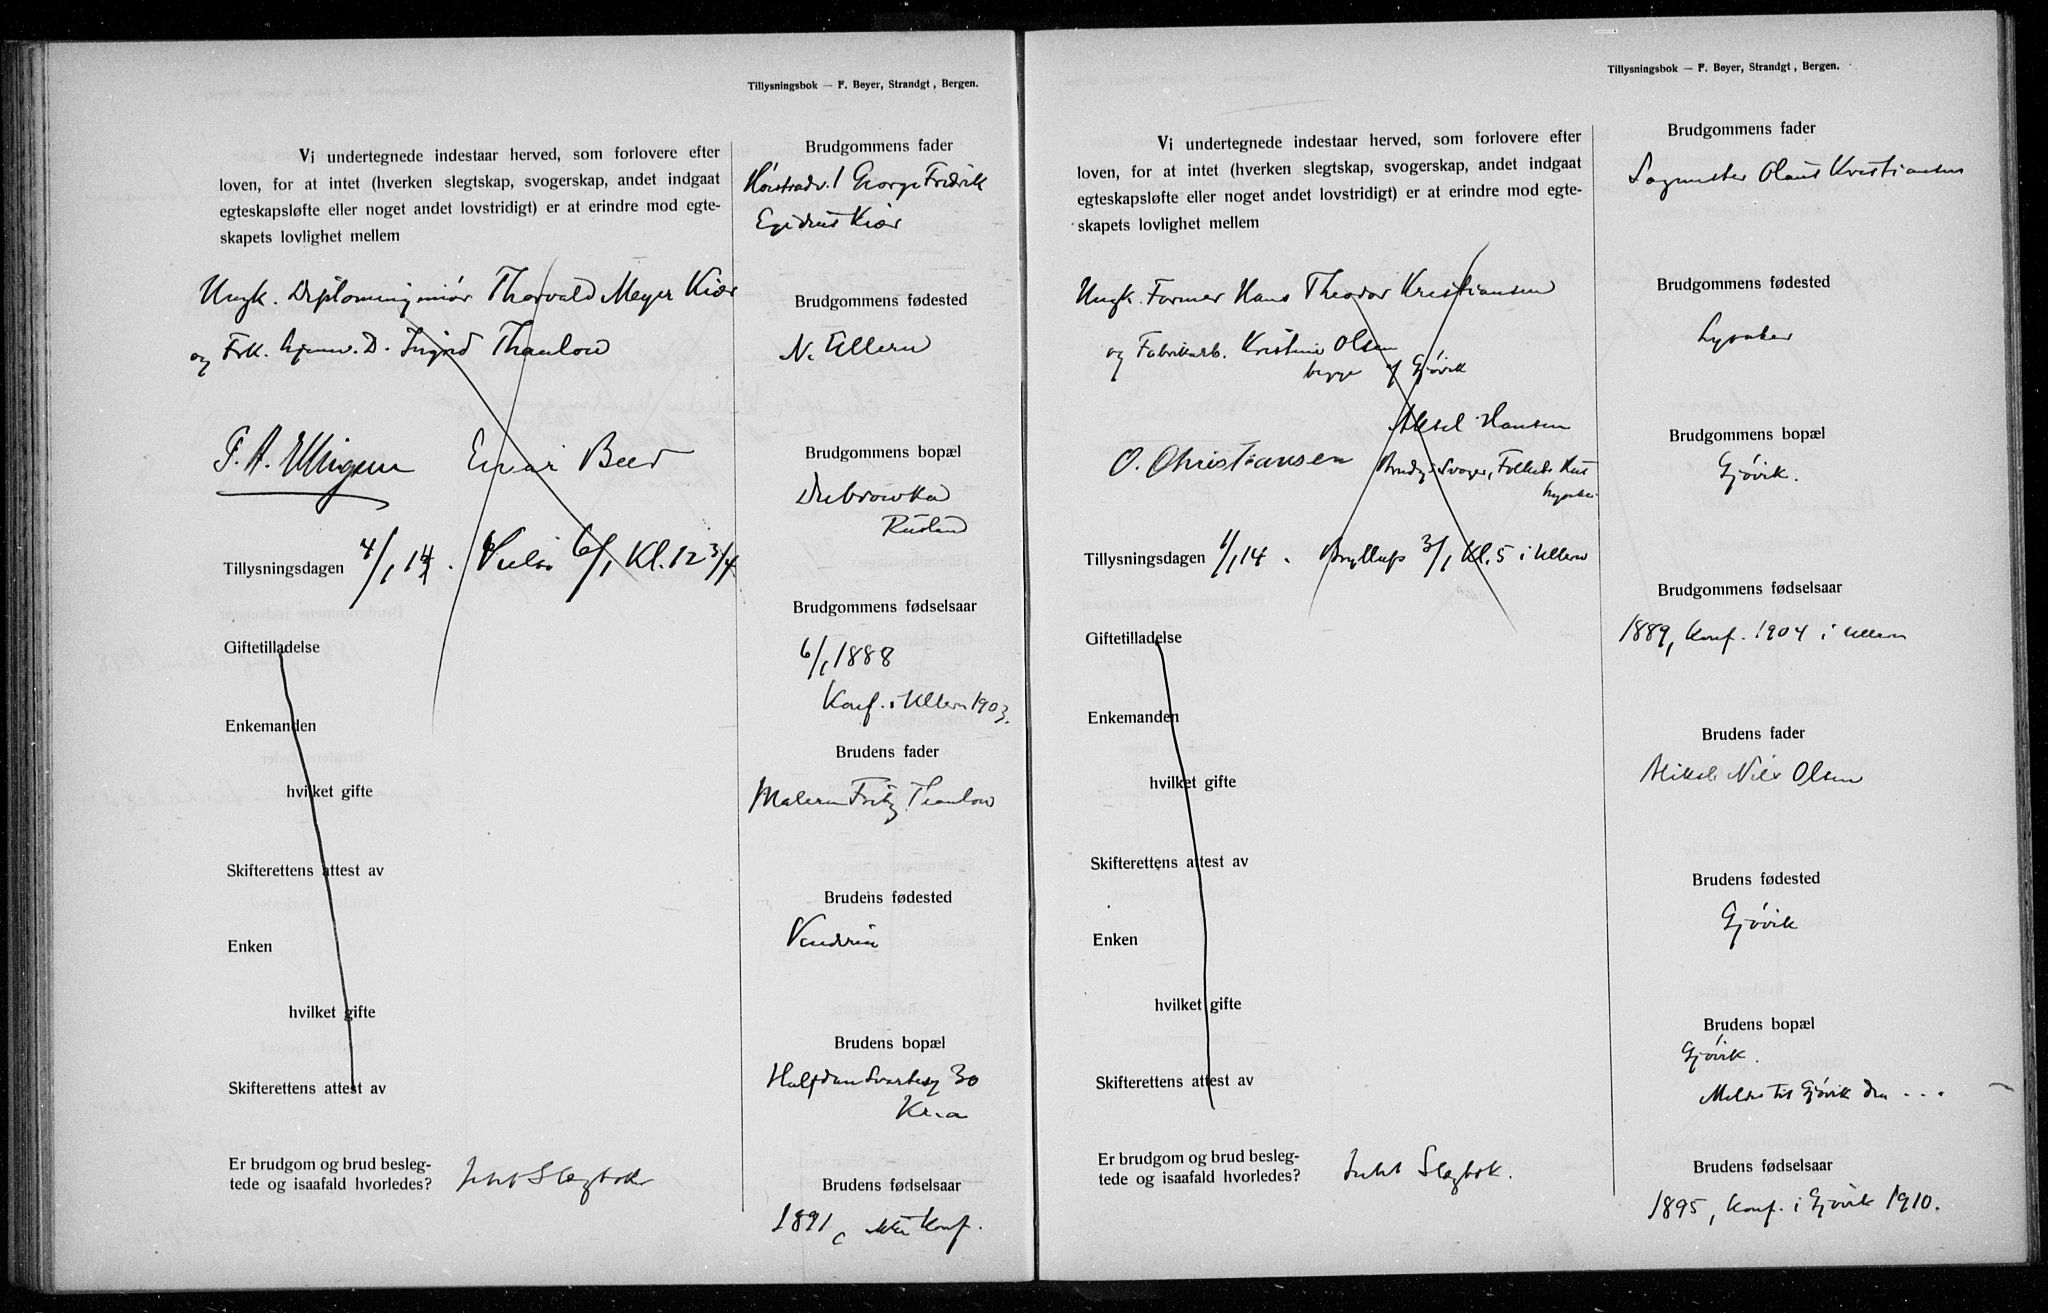 Tillysningsbok — F. Beyer, Strandgt, Bergen.
Vi undertegnede indestaar herved, som forlovere efter
loven, for at intet (hverken slegtskap, svogerskap, andet indgaat
egteskapsløfte eller noget andet lovstridigt) er at erindre mod egte-
skapets lovlighet mellem
Ungk. Diplomingeniør Thorvald Meyer Kiær
og Frk. D. Ingrid Thaulow
Einar
Tillysningsdagen 4/1 14. 6/1 Kl. 12 3/4
Giftetilladelse
Enkemanden
hvilket gifte
Skifterettens attest av
Enken
hvilket gifte
Skifterettens attest av
Er brudgom og brud besleg-
tede og isaafald hvorledes? Intet Slegtsk
Brudgommens fader
George Fridrik
Egidius Kiær
Brudgommens fødested
N. Ullern
Brudgommens bopæl
Dubrowka
Rusland
Brudgommens fødselsaar
6/1 1888
Konf. i Ullern 1903.
Brudens fader
Maleren Fritz Thaulow
Brudens fødested
Brudens bopæl
Halfdan Svartesg 30
Kr.a
Brudens fødselsaar
1891, ikke Konf.
Tillysningsbok — F. Beyer, Strandgt, Bergen.
Vi undertegnede indestaar herved, som forlovere efter
loven, for at intet (hverken slegtskap, svogerskap, andet indgaat
egteskapsløfte eller noget andet lovstridigt) er at erindre mod egte-
skapets lovlighet mellem
Ungk. Former Hans Theodor Kristiansen
og Fabrikarb. Kristine Olsen
begge af Gjøvik
Aksel Hansen
O. Christiansen Brudg. Svoger, Folkets Hus
Lysaker
Tillysningsdagen 1/1 14. Bryllup 3/1 Kl. 5 i Ullern
Giftetilladelse
Enkemanden
hvilket gifte
Skifterettens attest av
Enken
hvilket gifte
Skifterettens attest av
Er brudgom og brud besleg-
tede og isaafald hvorledes? Intet Slegtsk.
Brudgommens fader
Sagmester Olaus Kristiansen
Brudgommens fødested
Lysaker
Brudgommens bopæl
Gjøvik.
Brudgommens fødselsaar
1889, Konf. 1904 i Ullern
Brudens fader
Nils Olsen
Brudens fødested
Gjøvik
Brudens bopæl
Gjøvik.
Meldt til Gjøvik den ...
Brudens fødselsaar
1895, Konf. i Gjøvik 1910.